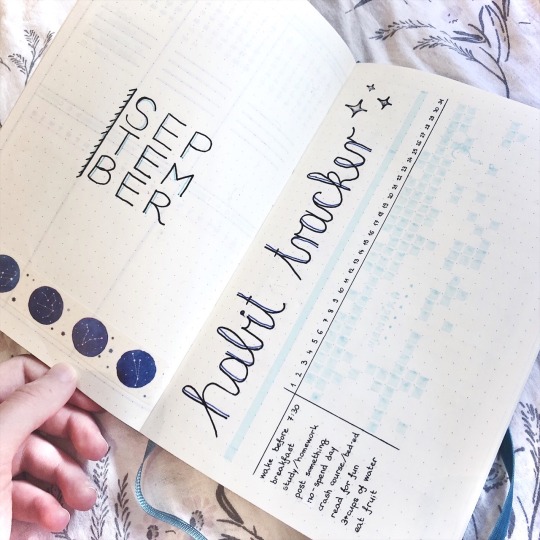 SEP
TEM
BER
habit tracker
1 2 3 4 5 6 7 8 9 10 11 12 13 14 15 16 17 18 19 20 21 22 23 24 25 26 27 28 29 30
wake before 7:30
breakfast
study/homework
post something
no-spend day
crash course/ted-ed
read for fun
3+cups of water
eat fruit